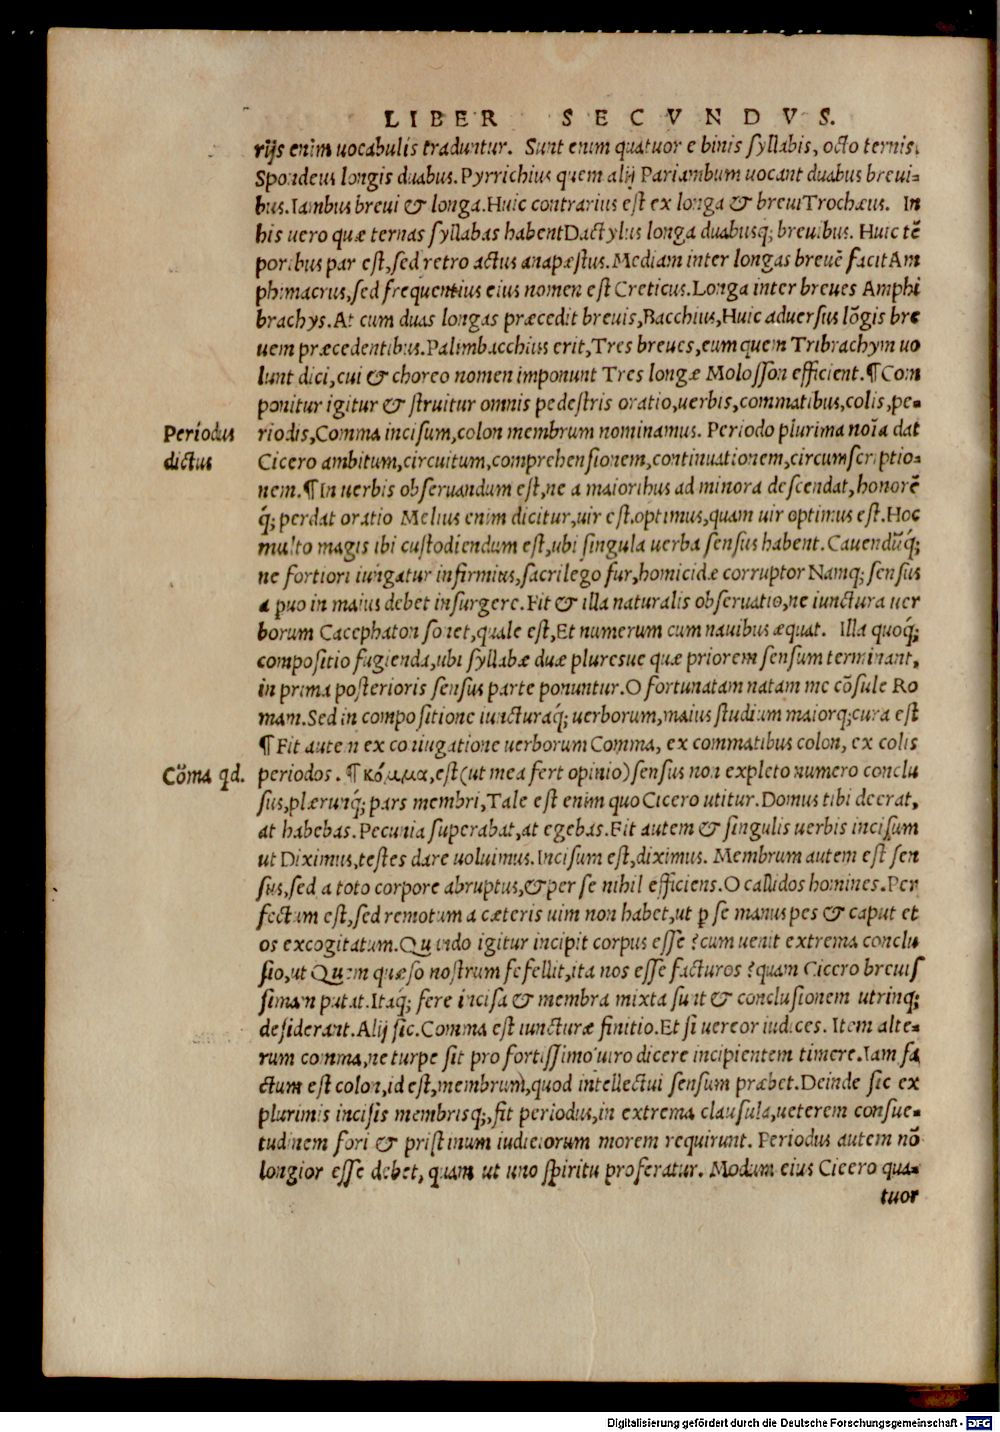 LIBER SECVNDVS.
rijs enim uocabulis traduntur. Sunt enim quatuor e binis syllabis, octo ternis.
Spondeus longis duabus. Pyrrichius quem alij Pariambum uocant duabus breui-
bus. Iambus breui & longa. Huic contrarius est ex longa & breui Trochæus. In
his uero quæ ternas syllabas habent Dactylus longa duabusq; breuibus. Huic tē
poribus par est, sed retro actus anapæstus. Mediam inter longas breuē facit Am
phimacrus, sed frequentius eius nomen est Creticus. Longa inter breues Amphi
brachys. At cum duas longas præcedit breuis, Bacchius, Huic aduersus lōgis bre
uem præcedentibus. Palimbacchius erit, Tres breues, eum quem Tribrachym uo
lunt dici, cui & choreo nomen imponunt Tres longæ Molosson efficient. ¶ Com
ponitur igitur & struitur omnis pedestris oratio, uerbis, commatibus, colis, pe-
Periodus
riodis, Comma incisum, colon membrum nominamus. Periodo plurima noīa dat
dictus
Cicero ambitum, circuitum, comprehensionem, continuationem, circumscriptio-
nem. ¶ In uerbis obseruandum est, ne a maioribus ad minora descendat, honorē
q́; perdat oratio Melius enim dicitur, uir est optimus, quam uir optimus est. Hoc
multo magis ibi custodiendum est, ubi singula uerba sensus habent. Cauendūq́;
ne fortiori iungatur infirmius, sacrilego fur, homicidæ corruptor Namq; sensus
a puo in maius debet insurgere. Fit & illa naturalis obseruatio, ne iunctura uer
borum Cacephaton sonet, quale est, Et numerum cum nauibus æquat. Illa quoq́;
compositio fugienda, ubi syllabæ duæ pluresue quæ priorem sensum terminant,
in prima posterioris sensus parte ponuntur. O fortunatam natam me cōsule Ro
mam. Sed in compositione iuncturaq́; uerborum, maius studium maiorq; cura est
¶ Fit autem ex coniugatione uerborum Comma, ex commatibus colon, ex colis
Cōma qd.
periodos. ¶ κόμμα, est (ut mea fert opinio) sensus non expleto numero conclu
sus, plærunq́; pars membri, Tale est enim quo Cicero utitur. Domus tibi deerat,
at habebas. Pecunia superabat, at egebas. Fit autem & singulis uerbis incisum
ut Diximus, testes dare uoluimus. Incisum est, diximus. Membrum autem est sen
sus, sed a toto corpore abruptus, & per se nihil efficiens. O callidos homines. Per
fectum est, sed remotum a cæteris uim non habet, ut ꝑ se manus pes & caput et
os excogitatum. Quando igitur incipit corpus esse? cum uenit extrema conclu
sio, ut Quem quæso nostrum fefellit, ita nos esse facturos? quam Cicero breuis
siman putat. Itaq́; fere incisa & membra mixta sunt & conclusionem utrinq;
desiderant. Alij sic. Comma est iuncturæ finitio. Et si uereor iudices. Item alte-
rum comma, ne turpe sit pro fortissimo uiro dicere incipientem timere. Iam fa
ctum est colon, id est, membrum, quod intellectui sensum præbet. Deinde sic ex
plurimis incisis membrisq;, fit periodus, in extrema clausula, ueterem consue-
tudinem fori & pristinum iudiciorum morem requirunt. Periodus autem nō
longior esse debet, quam ut uno spiritu proferatur. Modum eius Cicero qua-
tuor
Digitalisierung gefördert durch die Deutsche Forschungsgemeinschaft - DFG